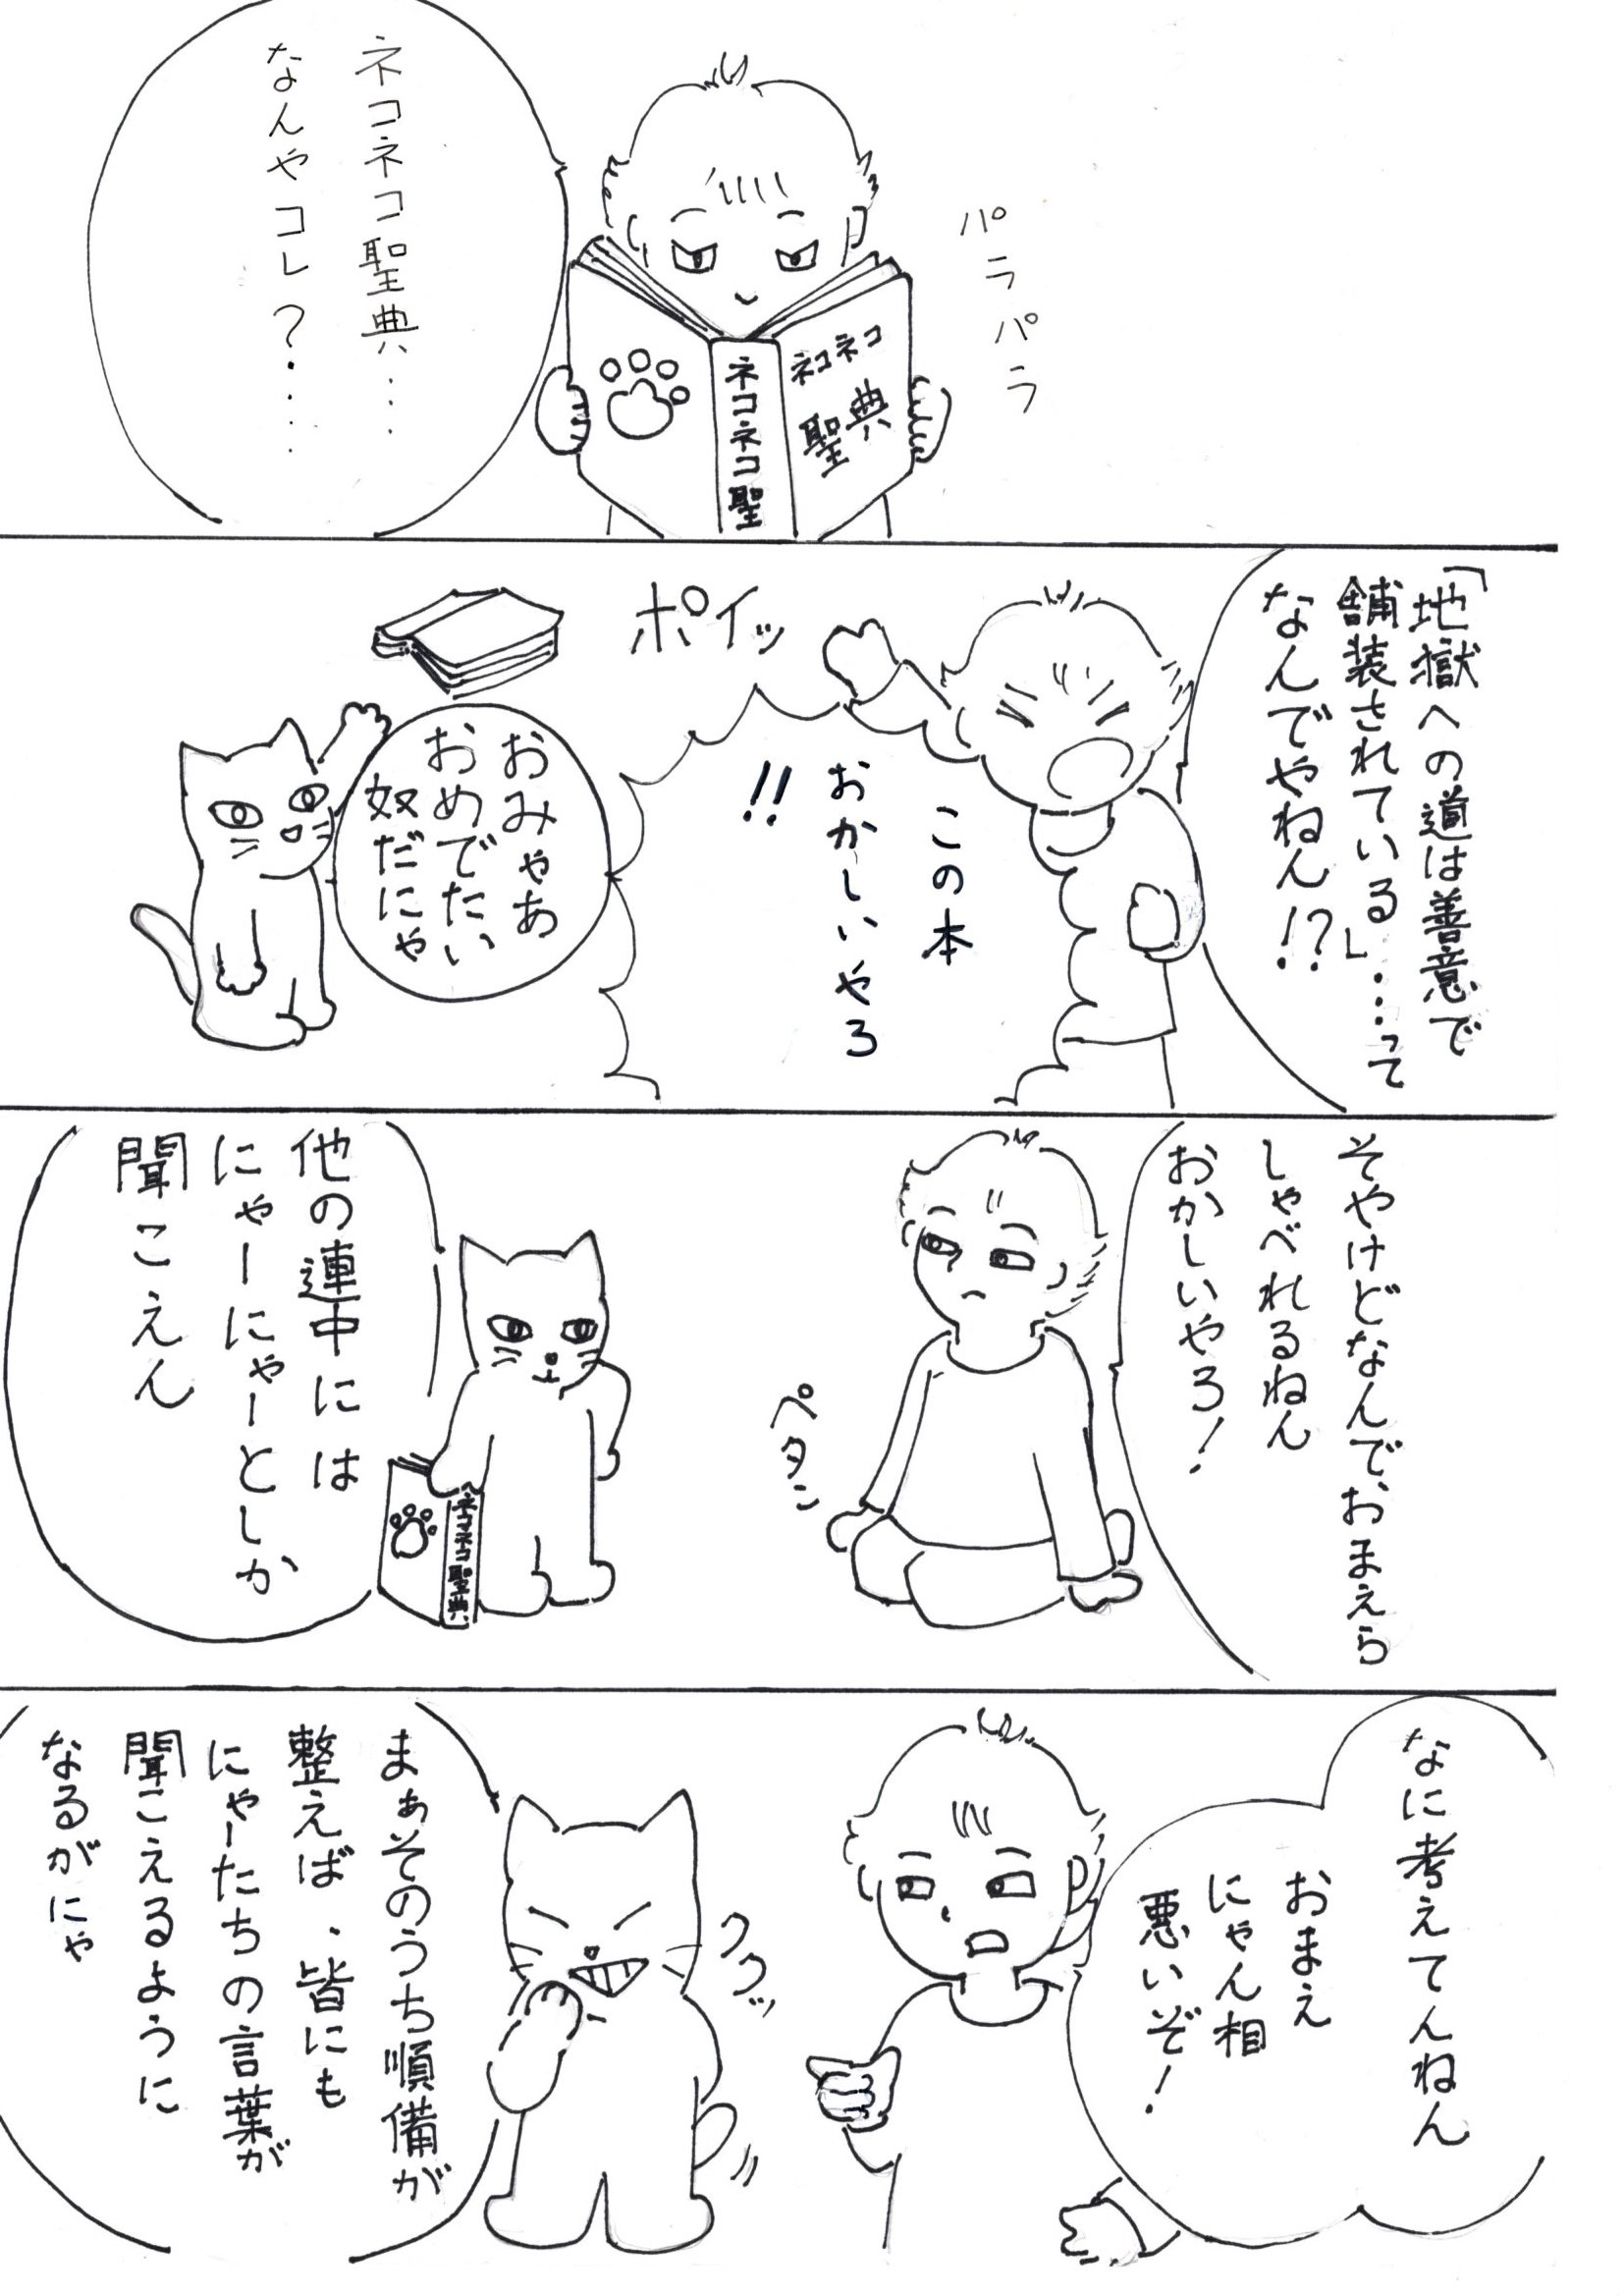 パラパラ
ネコネコ聖典…
なんやコレ?……
ネコネコ
聖典
ネコネコ聖
「地獄への道は善意で
舗装されている」…って
なんでやねん!?
この本
おかしいやろ
!!
ポイッ
おみゃあ
おめでたい
奴だにゃ
そやけどなんでおまえら
しゃべれるねん
おかしいやろ!
ペタン
他の連中には
にゃーにゃーとしか
聞こえん
ネコネコ聖典
なに考えてんねん
おまえ
にゃん相
悪いぞ!
ククッ
まぁそのうち順備が
整えば、皆にも
にゃーたちの言葉が
聞こえるように
なるがにゃ